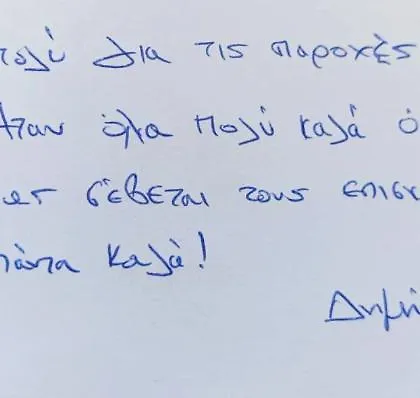 πολύ για τις παροχές
Ήταν όλα πολύ καλά ό
σέβεται τους επισκ
πάντα καλά!
Δημή